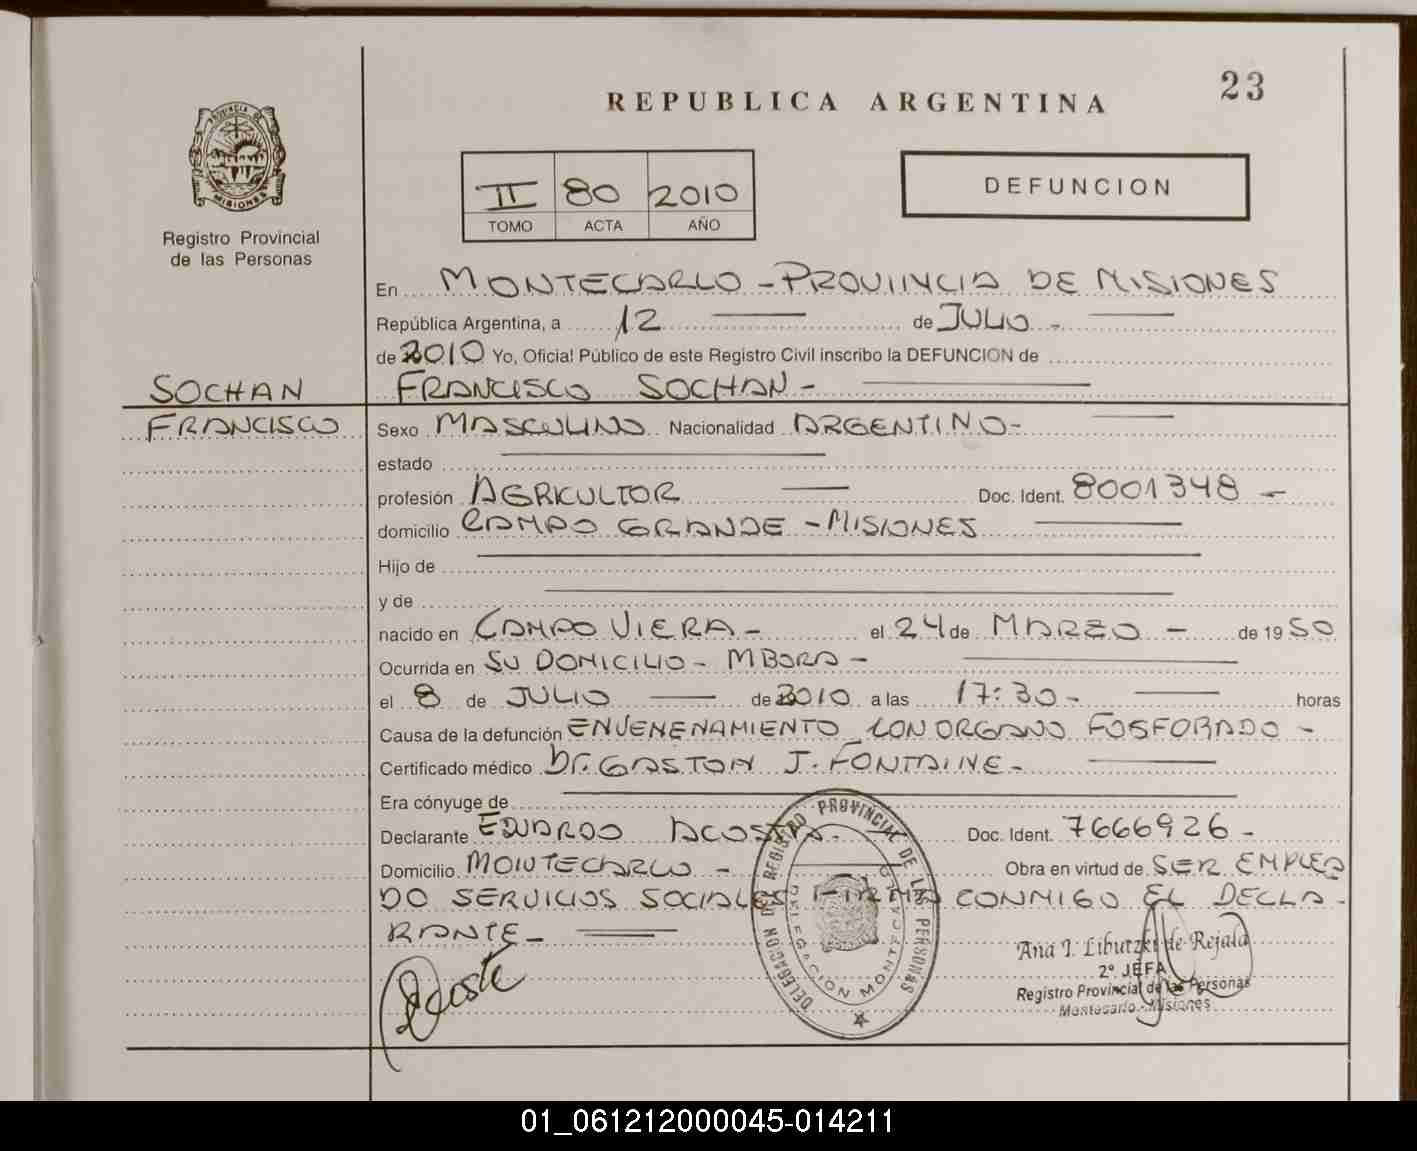 23
REPUBLICA ARGENTINA
PROVINCIA DE
MISIONES
Registro Provincial
de las Personas
II 80 2010
TOMO ACTA AÑO
DEFUNCION
En MONTECARLO - PROVINCIA DE MISIONES
República Argentina, a 12 de JULIO -
de 2010 Yo, Oficial Público de este Registro Civil inscribo la DEFUNCION de
SOCHAN
FRANCISCO
FRANCISCO SOCHAN -
Sexo MASCULINO Nacionalidad ARGENTINO -
estado
profesión AGRICULTOR Doc. Ident. 8001348 -
domicilio CAMPO GRANDE - MISIONES
Hijo de
y de
nacido en CAMPO VIERA - el 24 de MARZO - de 1950
Ocurrida en SU DOMICILIO - MBORA -
el 8 de JULIO de 2010 a las 17:30 - horas
Causa de la defunción ENVENENAMIENTO CON ORGANO FOSFORADO -
Certificado médico Dr. GASTON J. FONTAINE -
Era cónyuge de
Declarante EDUARDO ACOSTA - Doc. Ident. 7666926 -
Domicilio MONTECARLO - Obra en virtud de SER EMPLEA
DO SERVICIOS SOCIALES FIRMA CONMIGO EL DECLA-
RANTE -
Acosta
DELEGACION DEL REGISTRO PROVINCIAL DE LAS PERSONAS
DELEGACION MONTECARLO
Ana I. Libutzki de Rejala
2º JEFA
Registro Provincial de las Personas
Montecarlo - Misiones
01_061212000045-014211